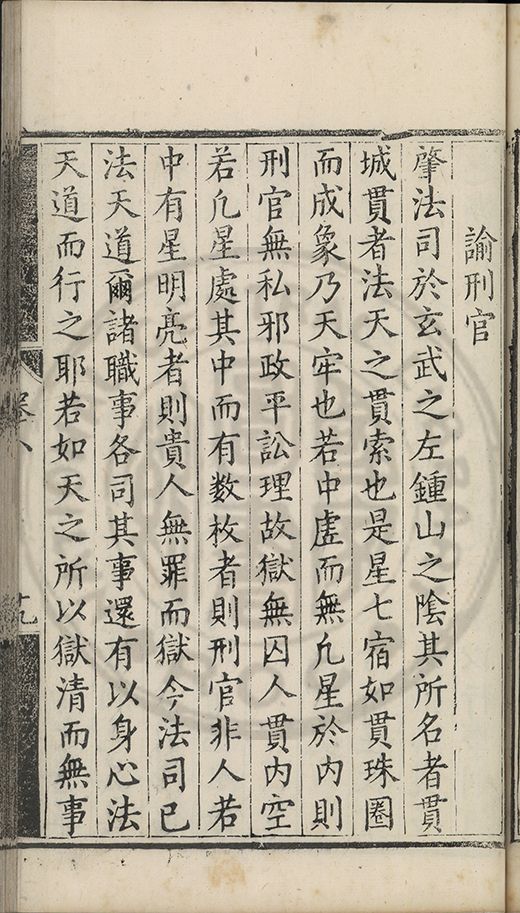 諭刑官
肇法司於玄武之左鍾山之陰其所名者貫
城貫者法天之貫索也是星七宿如貫珠圈
而成象乃天牢也若中虛而無凢星於內則
刑官無私邪政平訟理故獄無囚人貫內空
若凢星處其中而有数枚者則刑官非人若
中有星明亮者則貴人無罪而獄今法司已
法天道爾諸職事各司其事還有以身心法
天道而行之耶若如天之所以獄清而無事